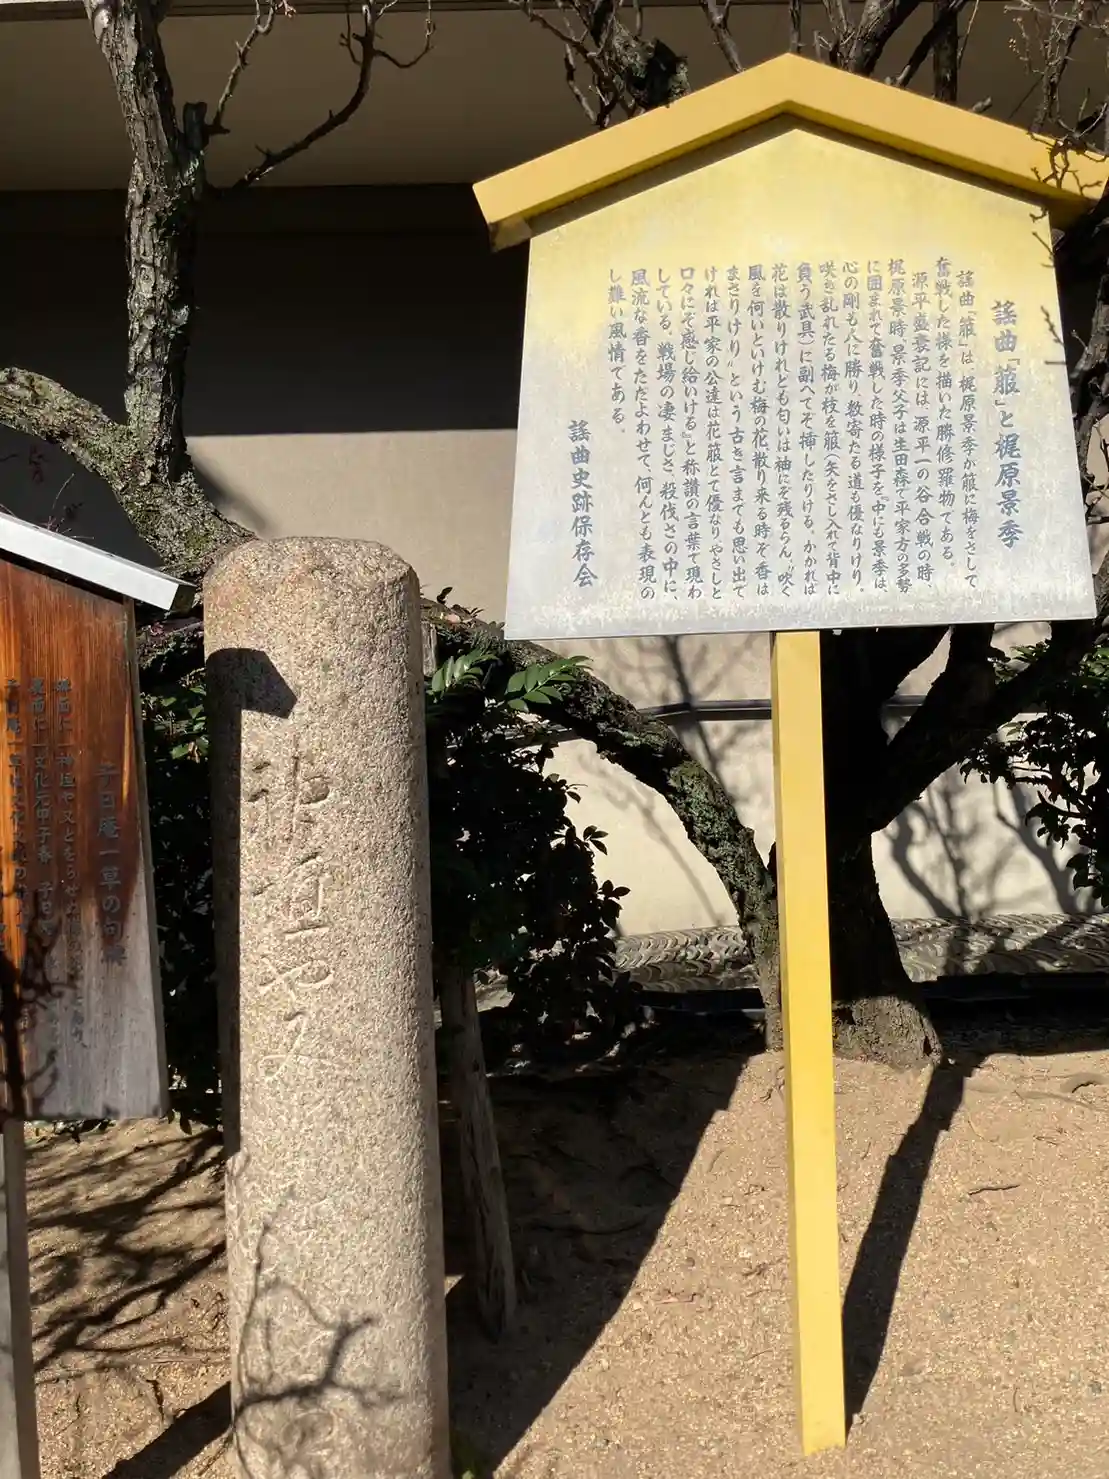 謡曲「箙」と梶原景季
謡曲「箙」は、梶原景季が箙に梅をさして、
奮戦した様を描いた勝修羅物である。
源平盛衰記には、源平一の谷合戦の時、
梶原景時・景季父子は生田森で平家方の多勢
に囲まれて奮戦した時の様子を『中にも景季は、
心の剛も人に勝り、数寄たる道も優なりけり。
咲き乱れたる梅が枝を箙(矢をさし入れて背中に
負う武具)に副へてぞ挿したりける。かかれば
花は散りけれども匂いは袖にぞ残るらん、“吹く
風を何いといけむ梅の花、散り来る時ぞ香は
まさりけり”という古き言までも思い出で
ければ平家の公達は花箙とて優なりやさしと
口々にぞ感じ給いける』と称讃の言葉で現わ
している。戦場の凄まじさ、殺伐さの中に、
風流な香をただよわせて、何んとも表現の
し難い風情である。
謡曲史跡保存会
神垣や又
子日庵一草の句碑
碑面に「神垣や又とをらせよ
裏面に「文化元甲子春 子日